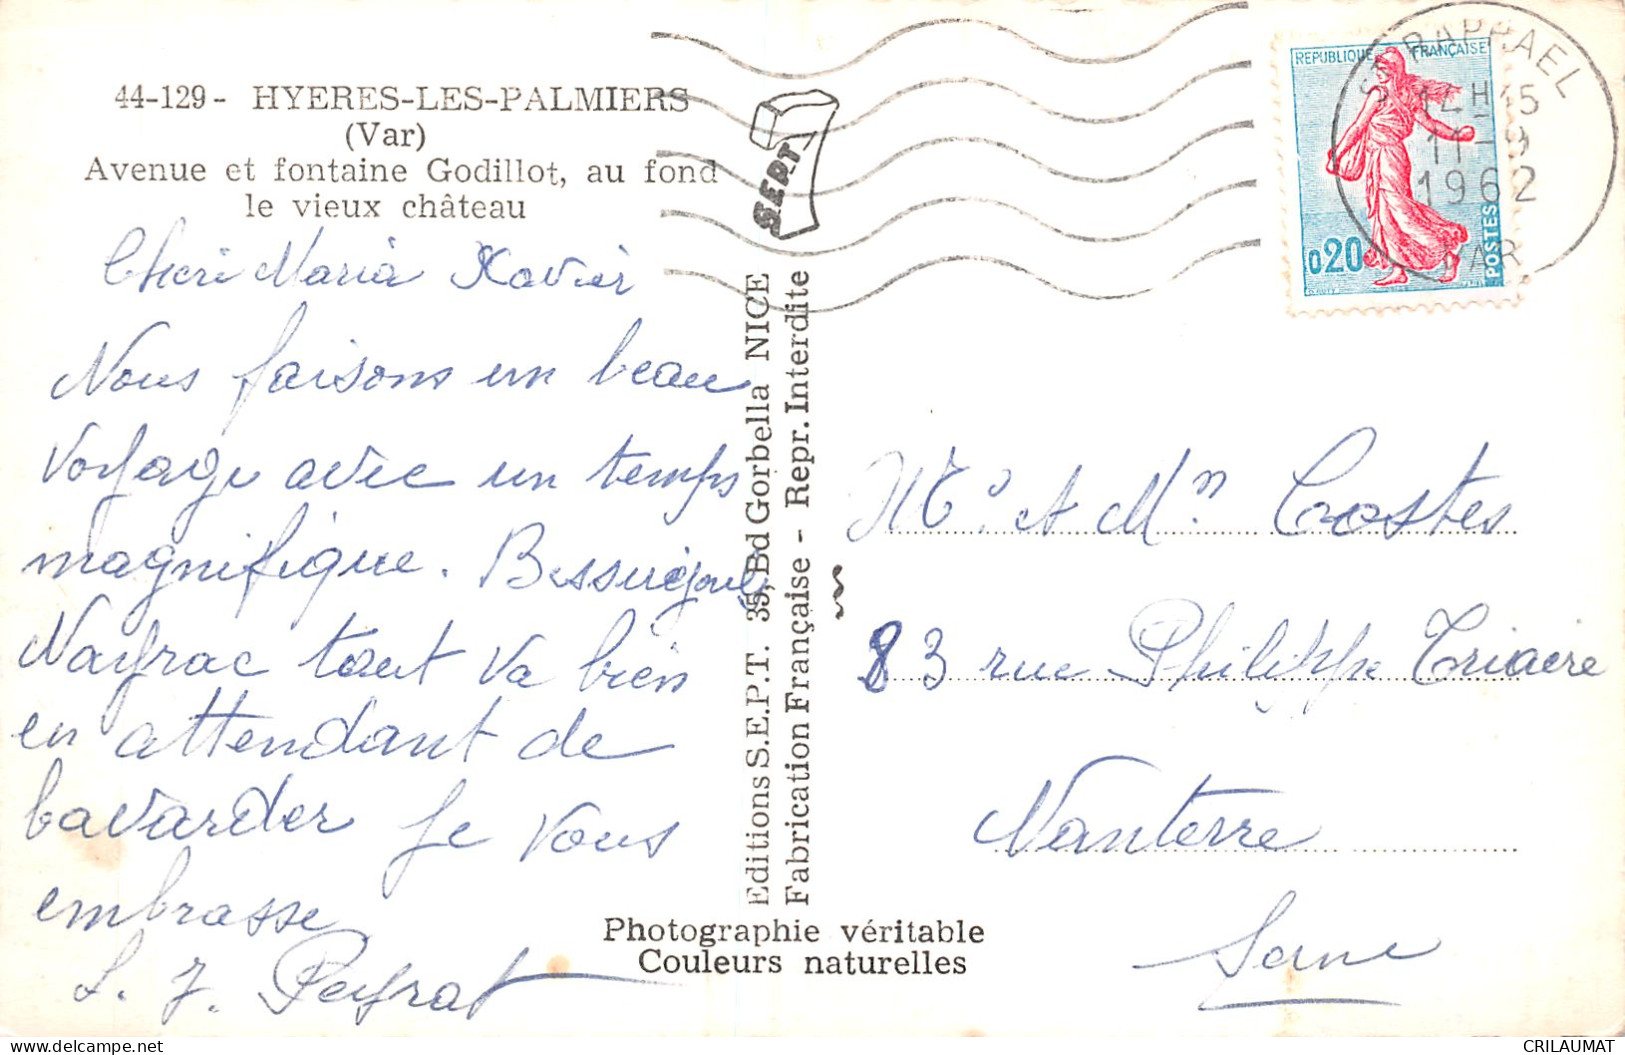 44-129 - HYERES-LES-PALMIERS
(Var)
Avenue et fontaine Godillot, au fond
le vieux château
Cheri Maria Xavier
Nous faisons un beau
voyage avec un temps
magnifique.
Nayrac tout va bien
en attendant de
bavarder je vous
embrasse
L. J. Peyrat
SEPT
Editions S.E.P.T. 35, Bd Gorbella NICE
Fabrication Française - Repr. Interdite
Photographie véritable
Couleurs naturelles
REPUBLIQUE FRANÇAISE
0,20
POSTES
ST RAPHAEL
14H15
11-9
1962
VAR
Mr et Mm Costes
83 rue Philippe Triaire
Nanterre
Seine
www.delcampe.net
CRILAUMAT